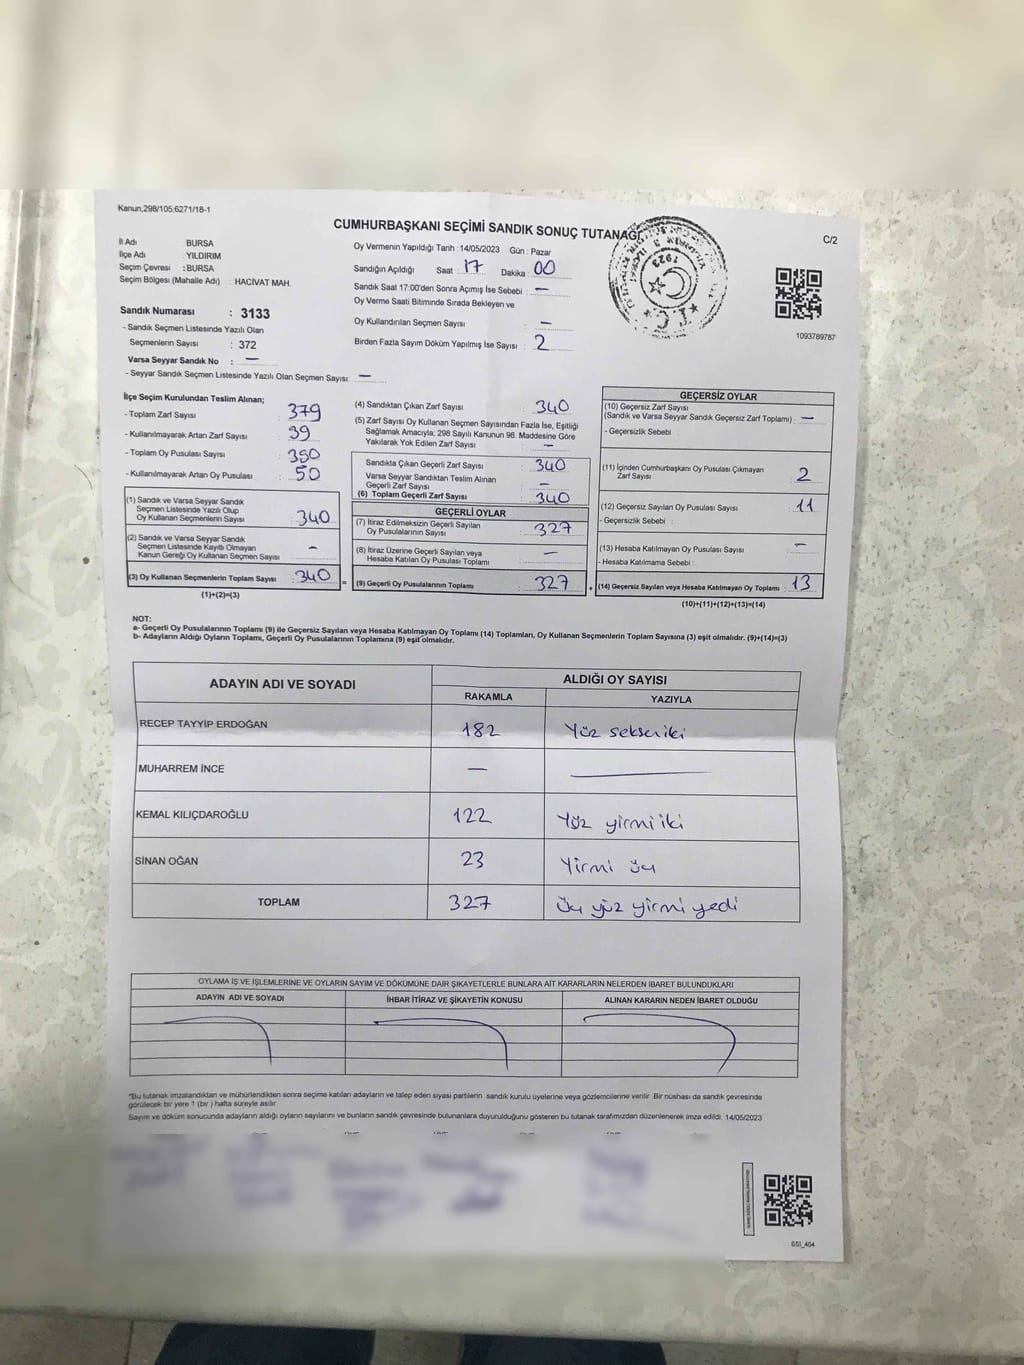 Kanun,298/105,6271/18-1
CUMHURBAŞKANI SEÇİMİ SANDIK SONUÇ TUTANAĞI
C/2
İl Adı BURSA
İlçe Adı : YILDIRIM
Seçim Çevresi : BURSA
Seçim Bölgesi (Mahalle Adı) : HACİVAT MAH.
Sandık Numarası : 3133
- Sandık Seçmen Listesinde Yazılı Olan
Seçmenlerin Sayısı : 372
Varsa Seyyar Sandık No : —
- Seyyar Sandık Seçmen Listesinde Yazılı Olan Seçmen Sayısı: —
Oy Vermenin Yapıldığı Tarih : 14/05/2023 Gün : Pazar
Sandığın Açıldığı Saat : 17 Dakika : 00
Sandık Saat 17:00'den Sonra Açımış İse Sebebi : —
Oy Verme Saati Bitiminde Sırada Bekleyen ve
Oy Kullandırılan Seçmen Sayısı : —
Birden Fazla Sayım Döküm Yapılmış İse Sayısı : 2
1923
T.C.
1093789787
İlçe Seçim Kurulundan Teslim Alınan;
- Toplam Zarf Sayısı : 379
- Kullanılmayarak Artan Zarf Sayısı : 39
- Toplam Oy Pusulası Sayısı : 350
- Kullanılmayarak Artan Oy Pusulası : 50
(1) Sandık ve Varsa Seyyar Sandık
Seçmen Listesinde Yazılı Olup
Oy Kullanan Seçmenlerin Sayısı : 340
(2) Sandık ve Varsa Seyyar Sandık
Seçmen Listesinde Kayıtlı Olmayan
Kanun Gereği Oy Kullanan Seçmen Sayısı : —
(3) Oy Kullanan Seçmenlerin Toplam Sayısı : 340
(1)+(2)=(3)
(4) Sandıktan Çıkan Zarf Sayısı : 340
(5) Zarf Sayısı Oy Kullanan Seçmen Sayısından Fazla İse, Eşitliği
Sağlamak Amacıyla; 298 Sayılı Kanunun 98. Maddesine Göre
Yakılarak Yok Edilen Zarf Sayısı : —
Sandıkta Çıkan Geçerli Zarf Sayısı : 340
Varsa Seyyar Sandıktan Teslim Alınan
Geçerli Zarf Sayısı : —
(6) Toplam Geçerli Zarf Sayısı : 340
GEÇERLİ OYLAR
(7) İtiraz Edilmeksizin Geçerli Sayılan
Oy Pusulalarının Sayısı : 327
(8) İtiraz Üzerine Geçerli Sayılan veya
Hesaba Katılan Oy Pusulası Toplamı : —
= (9) Geçerli Oy Pusulalarının Toplamı : 327
GEÇERSİZ OYLAR
(10) Geçersiz Zarf Sayısı
(Sandık ve Varsa Seyyar Sandık Geçersiz Zarf Toplamı) : —
- Geçersizlik Sebebi :
(11) İçinden Cumhurbaşkanı Oy Pusulası Çıkmayan
Zarf Sayısı : 2
(12) Geçersiz Sayılan Oy Pusulası Sayısı : 11
- Geçersizlik Sebebi :
(13) Hesaba Katılmayan Oy Pusulası Sayısı : —
- Hesaba Katılmama Sebebi :
+ (14) Geçersiz Sayılan veya Hesaba Katılmayan Oy Toplamı : 13
(10)+(11)+(12)+(13)=(14)
NOT:
a- Geçerli Oy Pusulalarının Toplamı (9) ile Geçersiz Sayılan veya Hesaba Katılmayan Oy Toplamı (14) Toplamları, Oy Kullanan Seçmenlerin Toplam Sayısına (3) eşit olmalıdır. (9)+(14)=(3)
b- Adayların Aldığı Oyların Toplamı, Geçerli Oy Pusulalarının Toplamına (9) eşit olmalıdır.
ADAYIN ADI VE SOYADI
ALDIĞI OY SAYISI
RAKAMLA YAZIYLA
RECEP TAYYİP ERDOĞAN 182 Yüz sekseniki
MUHARREM İNCE —
KEMAL KILIÇDAROĞLU 122 Yüz yirmi iki
SİNAN OĞAN 23 Yirmi üç
TOPLAM 327 üç yüz yirmi yedi
OYLAMA İŞ VE İŞLEMLERİNE VE OYLARIN SAYIM VE DÖKÜMÜNE DAİR ŞİKAYETLERLE BUNLARA AİT KARARLARIN NELERDEN İBARET BULUNDUKLARI
ADAYIN ADI VE SOYADI İHBAR İTİRAZ VE ŞİKAYETİN KONUSU ALINAN KARARIN NEDEN İBARET OLDUĞU
*Bu tutanak imzalandıktan ve mühürlendikten sonra seçime katılan adayların ve talep eden siyasi partilerin sandık kurulu üyelerine veya gözlemcilerine verilir. Bir nüshası da sandık çevresinde
görülecek bir yere 1 (bir) hafta süreyle asılır.
Sayım ve döküm sonucunda adayların aldığı oyların sayılarını ve bunların sandık çevresinde bulunanlara duyurulduğunu gösteren bu tutanak tarafımızdan düzenlenerek imza edildi. 14/05/2023